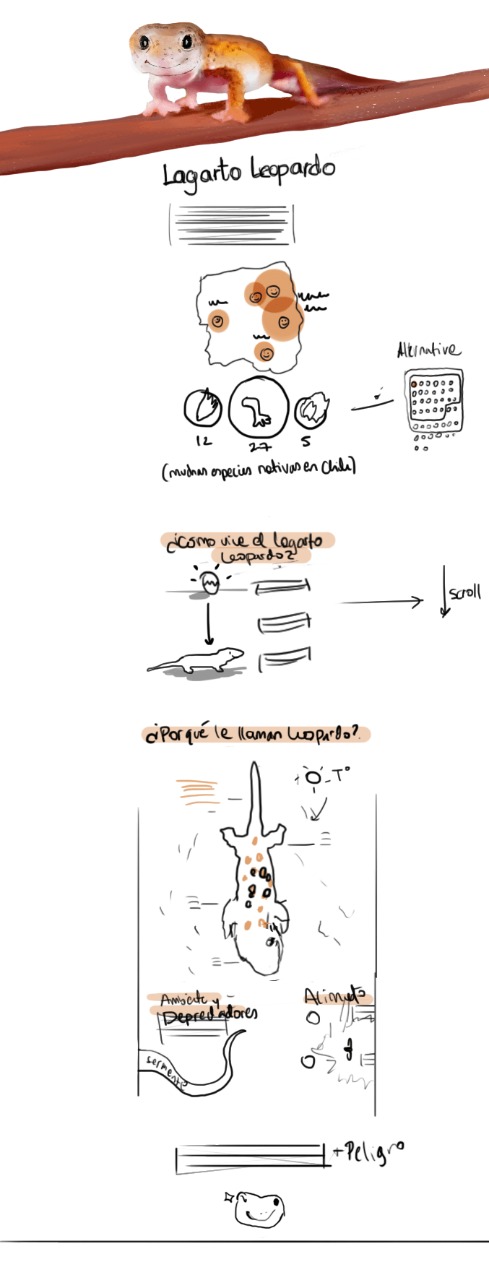 Lagarto Leopardo
Alternative
12
27
5
(muchas especies nativas en Chile)
¿Cómo vive el lagarto
Leopardo?
scroll
¿Porqué le llaman Leopardo?
T°
Ambiente y
Depredadores
Alimento
serpiente
+Peligro